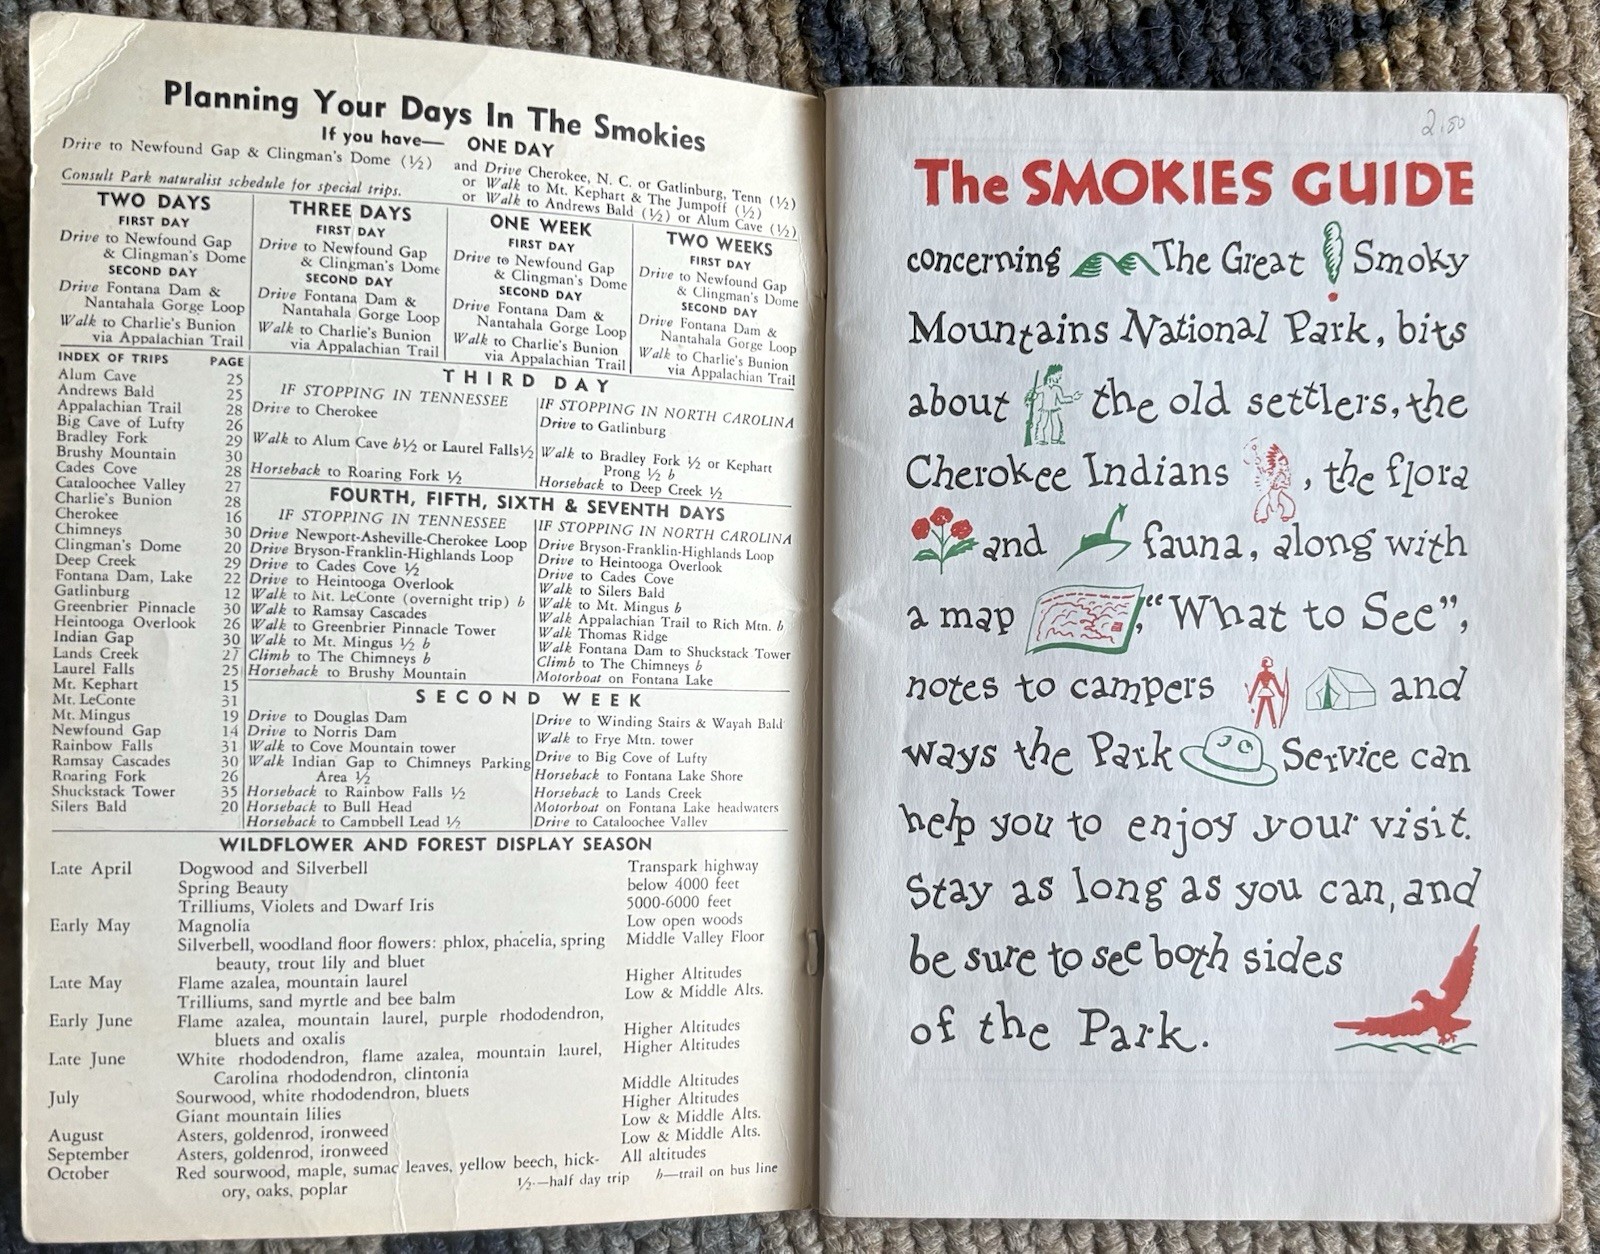 Planning Your Days In The Smokies
If you have— ONE DAY
Drive to Newfound Gap & Clingman's Dome (½)
and Drive Cherokee, N. C. or Gatlinburg, Tenn (½)
or Walk to Mt. Kephart & The Jumpoff (½)
or Walk to Andrews Bald (½) or Alum Cave (½)
Consult Park naturalist schedule for special trips.
TWO DAYS
FIRST DAY
Drive to Newfound Gap
& Clingman's Dome
SECOND DAY
Drive Fontana Dam &
Nantahala Gorge Loop
Walk to Charlie's Bunion
via Appalachian Trail
THREE DAYS
FIRST DAY
Drive to Newfound Gap
& Clingman's Dome
SECOND DAY
Drive Fontana Dam &
Nantahala Gorge Loop
Walk to Charlie's Bunion
via Appalachian Trail
ONE WEEK
FIRST DAY
Drive to Newfound Gap
& Clingman's Dome
SECOND DAY
Drive Fontana Dam &
Nantahala Gorge Loop
Walk to Charlie's Bunion
via Appalachian Trail
TWO WEEKS
FIRST DAY
Drive to Newfound Gap
& Clingman's Dome
SECOND DAY
Drive Fontana Dam &
Nantahala Gorge Loop
Walk to Charlie's Bunion
via Appalachian Trail
INDEX OF TRIPS PAGE
Alum Cave 25
Andrews Bald 25
Appalachian Trail 28
Big Cave of Lufty 26
Bradley Fork 29
Brushy Mountain 30
Cades Cove 28
Cataloochee Valley 27
Charlie's Bunion 28
Cherokee 16
Chimneys 30
Clingman's Dome 20
Deep Creek 29
Fontana Dam, Lake 22
Gatlinburg 12
Greenbrier Pinnacle 30
Heintooga Overlook 26
Indian Gap 30
Lands Creek 27
Laurel Falls 25
Mt. Kephart 15
Mt. LeConte 31
Mt. Mingus 19
Newfound Gap 14
Rainbow Falls 31
Ramsay Cascades 30
Roaring Fork 26
Shuckstack Tower 35
Silers Bald 20
THIRD DAY
IF STOPPING IN TENNESSEE
Drive to Cherokee
Walk to Alum Cave b½ or Laurel Falls½
Horseback to Roaring Fork ½
IF STOPPING IN NORTH CAROLINA
Drive to Gatlinburg
Walk to Bradley Fork ½ or Kephart
Prong ½ b
Horseback to Deep Creek ½
FOURTH, FIFTH, SIXTH & SEVENTH DAYS
IF STOPPING IN TENNESSEE
Drive Newport-Asheville-Cherokee Loop
Drive Bryson-Franklin-Highlands Loop
Drive to Cades Cove ½
Drive to Heintooga Overlook
Walk to Mt. LeConte (overnight trip) b
Walk to Ramsay Cascades
Walk to Greenbrier Pinnacle Tower
Walk to Mt. Mingus ½ b
Climb to The Chimneys b
Horseback to Brushy Mountain
IF STOPPING IN NORTH CAROLINA
Drive Bryson-Franklin-Highlands Loop
Drive to Heintooga Overlook
Drive to Cades Cove
Walk to Silers Bald
Walk to Mt. Mingus b
Walk Appalachian Trail to Rich Mtn. b
Walk Thomas Ridge
Walk Fontana Dam to Shuckstack Tower
Climb to The Chimneys b
Motorboat on Fontana Lake
SECOND WEEK
Drive to Douglas Dam
Drive to Norris Dam
Walk to Cove Mountain tower
Walk Indian Gap to Chimneys Parking
Area ½
Horseback to Rainbow Falls ½
Horseback to Bull Head
Horseback to Campbell Lead ½
Drive to Winding Stairs & Wayah Bald
Walk to Frye Mtn. tower
Drive to Big Cove of Lufty
Horseback to Fontana Lake Shore
Horseback to Lands Creek
Motorboat on Fontana Lake headwaters
Drive to Cataloochee Valley
WILDFLOWER AND FOREST DISPLAY SEASON
Late April Dogwood and Silverbell Transpark highway
Spring Beauty below 4000 feet
Trilliums, Violets and Dwarf Iris 5000-6000 feet
Early May Magnolia Low open woods
Silverbell, woodland floor flowers: phlox, phacelia, spring Middle Valley Floor
beauty, trout lily and bluet
Late May Flame azalea, mountain laurel Higher Altitudes
Trilliums, sand myrtle and bee balm Low & Middle Alts.
Early June Flame azalea, mountain laurel, purple rhododendron,
bluets and oxalis Higher Altitudes
Late June White rhododendron, flame azalea, mountain laurel, Higher Altitudes
Carolina rhododendron, clintonia
July Sourwood, white rhododendron, bluets Middle Altitudes
Giant mountain lilies Higher Altitudes
August Asters, goldenrod, ironweed Low & Middle Alts.
September Asters, goldenrod, ironweed Low & Middle Alts.
October Red sourwood, maple, sumac leaves, yellow beech, hick- All altitudes
ory, oaks, poplar
½—half day trip b—trail on bus line
2.50
The SMOKIES GUIDE
concerning The Great Smoky
Mountains National Park, bits
about the old settlers, the
Cherokee Indians, the flora
and fauna, along with
a map, "What to See",
notes to campers and
ways the Park Service can
help you to enjoy your visit.
Stay as long as you can, and
be sure to see both sides
of the Park.